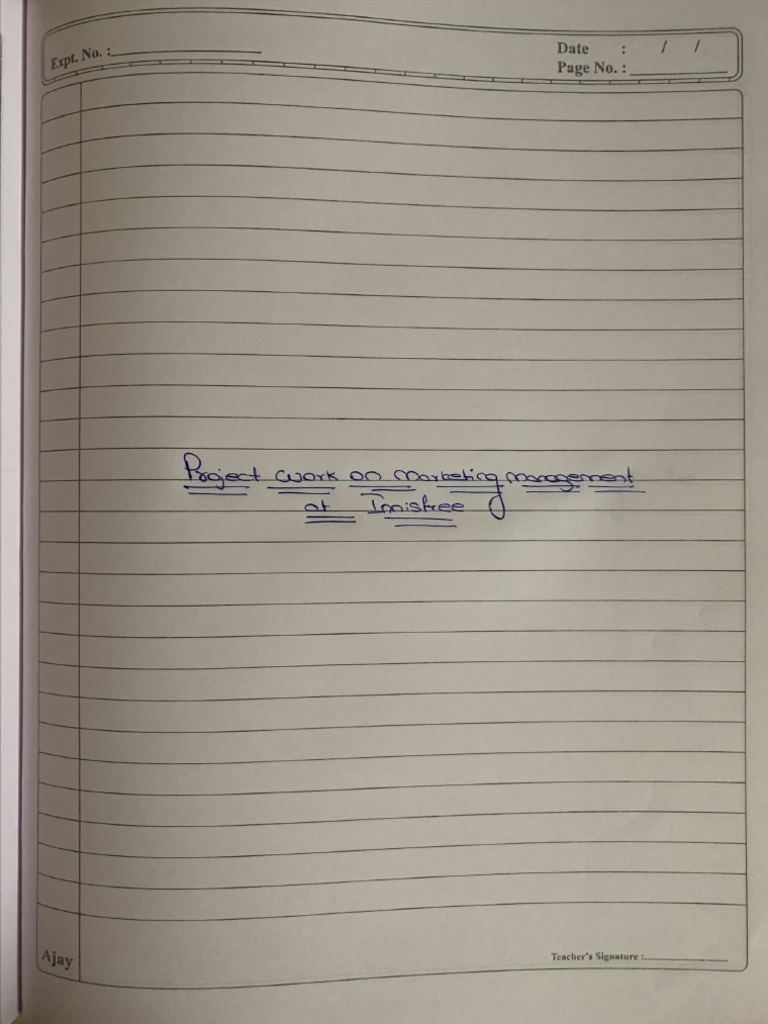 Expt. No. :
Date : / /
Page No. :
Project work on marketing management
at Innisfree
Ajay
Teacher's Signature :